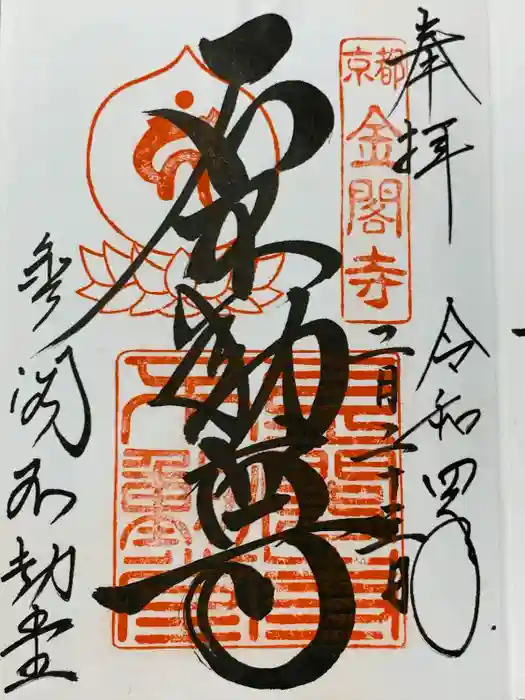 奉拝
京都
金閣寺
令和四年
二月二十三日
不動尊
金閣不動堂